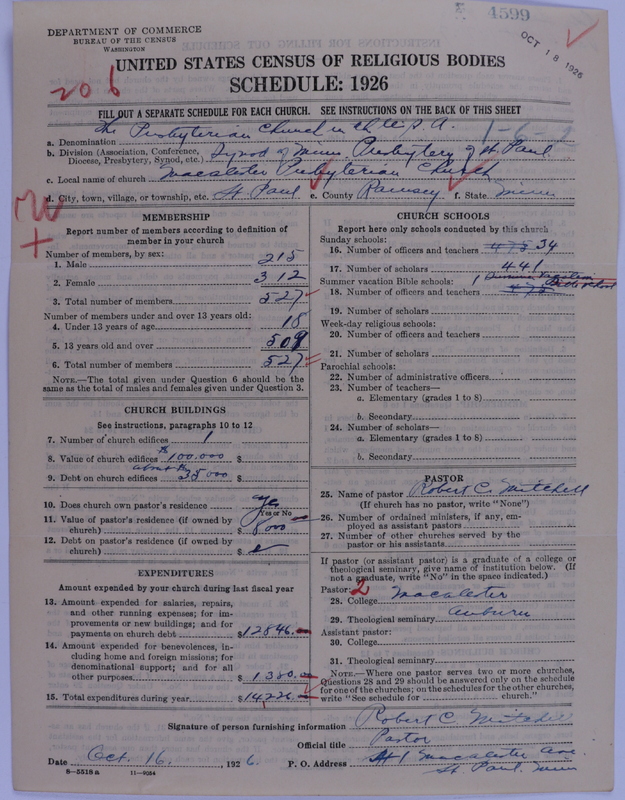 4599
OCT 18 1926
DEPARTMENT OF COMMERCE
BUREAU OF THE CENSUS
WASHINGTON
UNITED STATES CENSUS OF RELIGIOUS BODIES
SCHEDULE: 1926
206
FILL OUT A SEPARATE SCHEDULE FOR EACH CHURCH. SEE INSTRUCTIONS ON THE BACK OF THIS SHEET
a. Denomination The Presbyterian Church in the U.S.A.
1-6-
b. Division (Association, Conference, Diocese, Presbytery, Synod, etc.) Synod of Minn. Presbytery of St Paul
c. Local name of church Macalester Presbyterian Church
d. City, town, village, or township, etc. St Paul e. County Ramsey f. State Minn
MEMBERSHIP
Report number of members according to definition of member in your church
Number of members, by sex:
1. Male 215
2. Female 312
3. Total number of members 527
Number of members under and over 13 years old:
4. Under 13 years of age 18
5. 13 years old and over 509
6. Total number of members 527
NOTE.—The total given under Question 6 should be the same as the total of males and females given under Question 3.
CHURCH BUILDINGS
See instructions, paragraphs 10 to 12
7. Number of church edifices 1
8. Value of church edifices $100.000 $
9. Debt on church edifices about $35000 $
10. Does church own pastor's residence Yes
Yes or No
11. Value of pastor's residence (if owned by church) $8000
12. Debt on pastor's residence (if owned by church) $
EXPENDITURES
Amount expended by your church during last fiscal year
13. Amount expended for salaries, repairs, and other running expenses; for improvements or new buildings; and for payments on church debt $12846.
14. Amount expended for benevolences, including home and foreign missions; for denominational support; and for all other purposes $1380.
15. Total expenditures during year $14,226.
CHURCH SCHOOLS
Report here only schools conducted by this church
Sunday schools:
16. Number of officers and teachers 475 34
17. Number of scholars 441
Summer vacation Bible schools: 1 Summer Vacation Bible School
18. Number of officers and teachers 475
19. Number of scholars
Week-day religious schools:
20. Number of officers and teachers
21. Number of scholars
Parochial schools:
22. Number of administrative officers
23. Number of teachers—
a. Elementary (grades 1 to 8)
b. Secondary
24. Number of scholars—
a. Elementary (grades 1 to 8)
b. Secondary
PASTOR
25. Name of pastor Robert C. Mitchell
(If church has no pastor, write "None")
26. Number of ordained ministers, if any, employed as assistant pastors
27. Number of other churches served by the pastor or his assistants
If pastor (or assistant pastor) is a graduate of a college or theological seminary, give name of institution below. (If not a graduate, write "No" in the space indicated.)
Pastor: 2
28. College Macalester
29. Theological seminary Auburn
Assistant pastor:
30. College
31. Theological seminary
NOTE.—Where one pastor serves two or more churches, Questions 28 and 29 should be answered only on the schedule for one of the churches; on the schedules for the other churches, write "See schedule for church."
Signature of person furnishing information Robert C. Mitchell
Official title Pastor
Date Oct. 16, 1926. P. O. Address 41 Macalester Ave
St. Paul. Minn
8—5518 a 11—9054